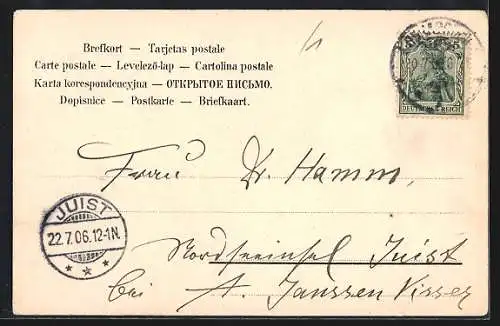 Brefkort — Tarjetas postale
Carte postale — Levelező-lap — Cartolina postale
Karta korespondencyjna — ОТКРЫТОЕ ПИСЬМО.
Dopisnice — Postkarte — Briefkaart.
5 5
DEUTSCHES REICH
Frau Dr. Hamm,
JUIST
22.7.06.12-1N.
* * *
Nordseeinsel Juist
bei A. Janssen Visser